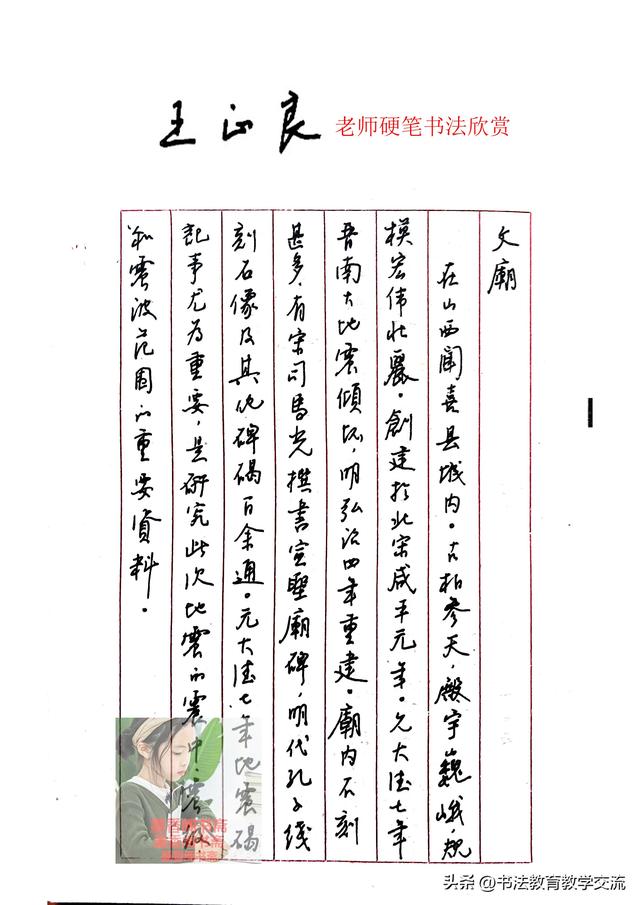 王正良 老师硬笔书法欣赏
文廟
在山西闻喜县城内。古柏参天，殿宇巍峨，规
模宏伟壮麗。創建於北宋咸平元年。元大德七年
晋南大地震傾圮，明弘治四年重建。廟内石刻
甚多，有宋司馬光撰書宣聖廟碑，明代孔子綫
刻石像及其他碑碣百余通。元大德七年地震碣
記事尤为重要，是研究此次地震的震中、震级
和震波范围的重要資料。
头条 @书法教育教学交流